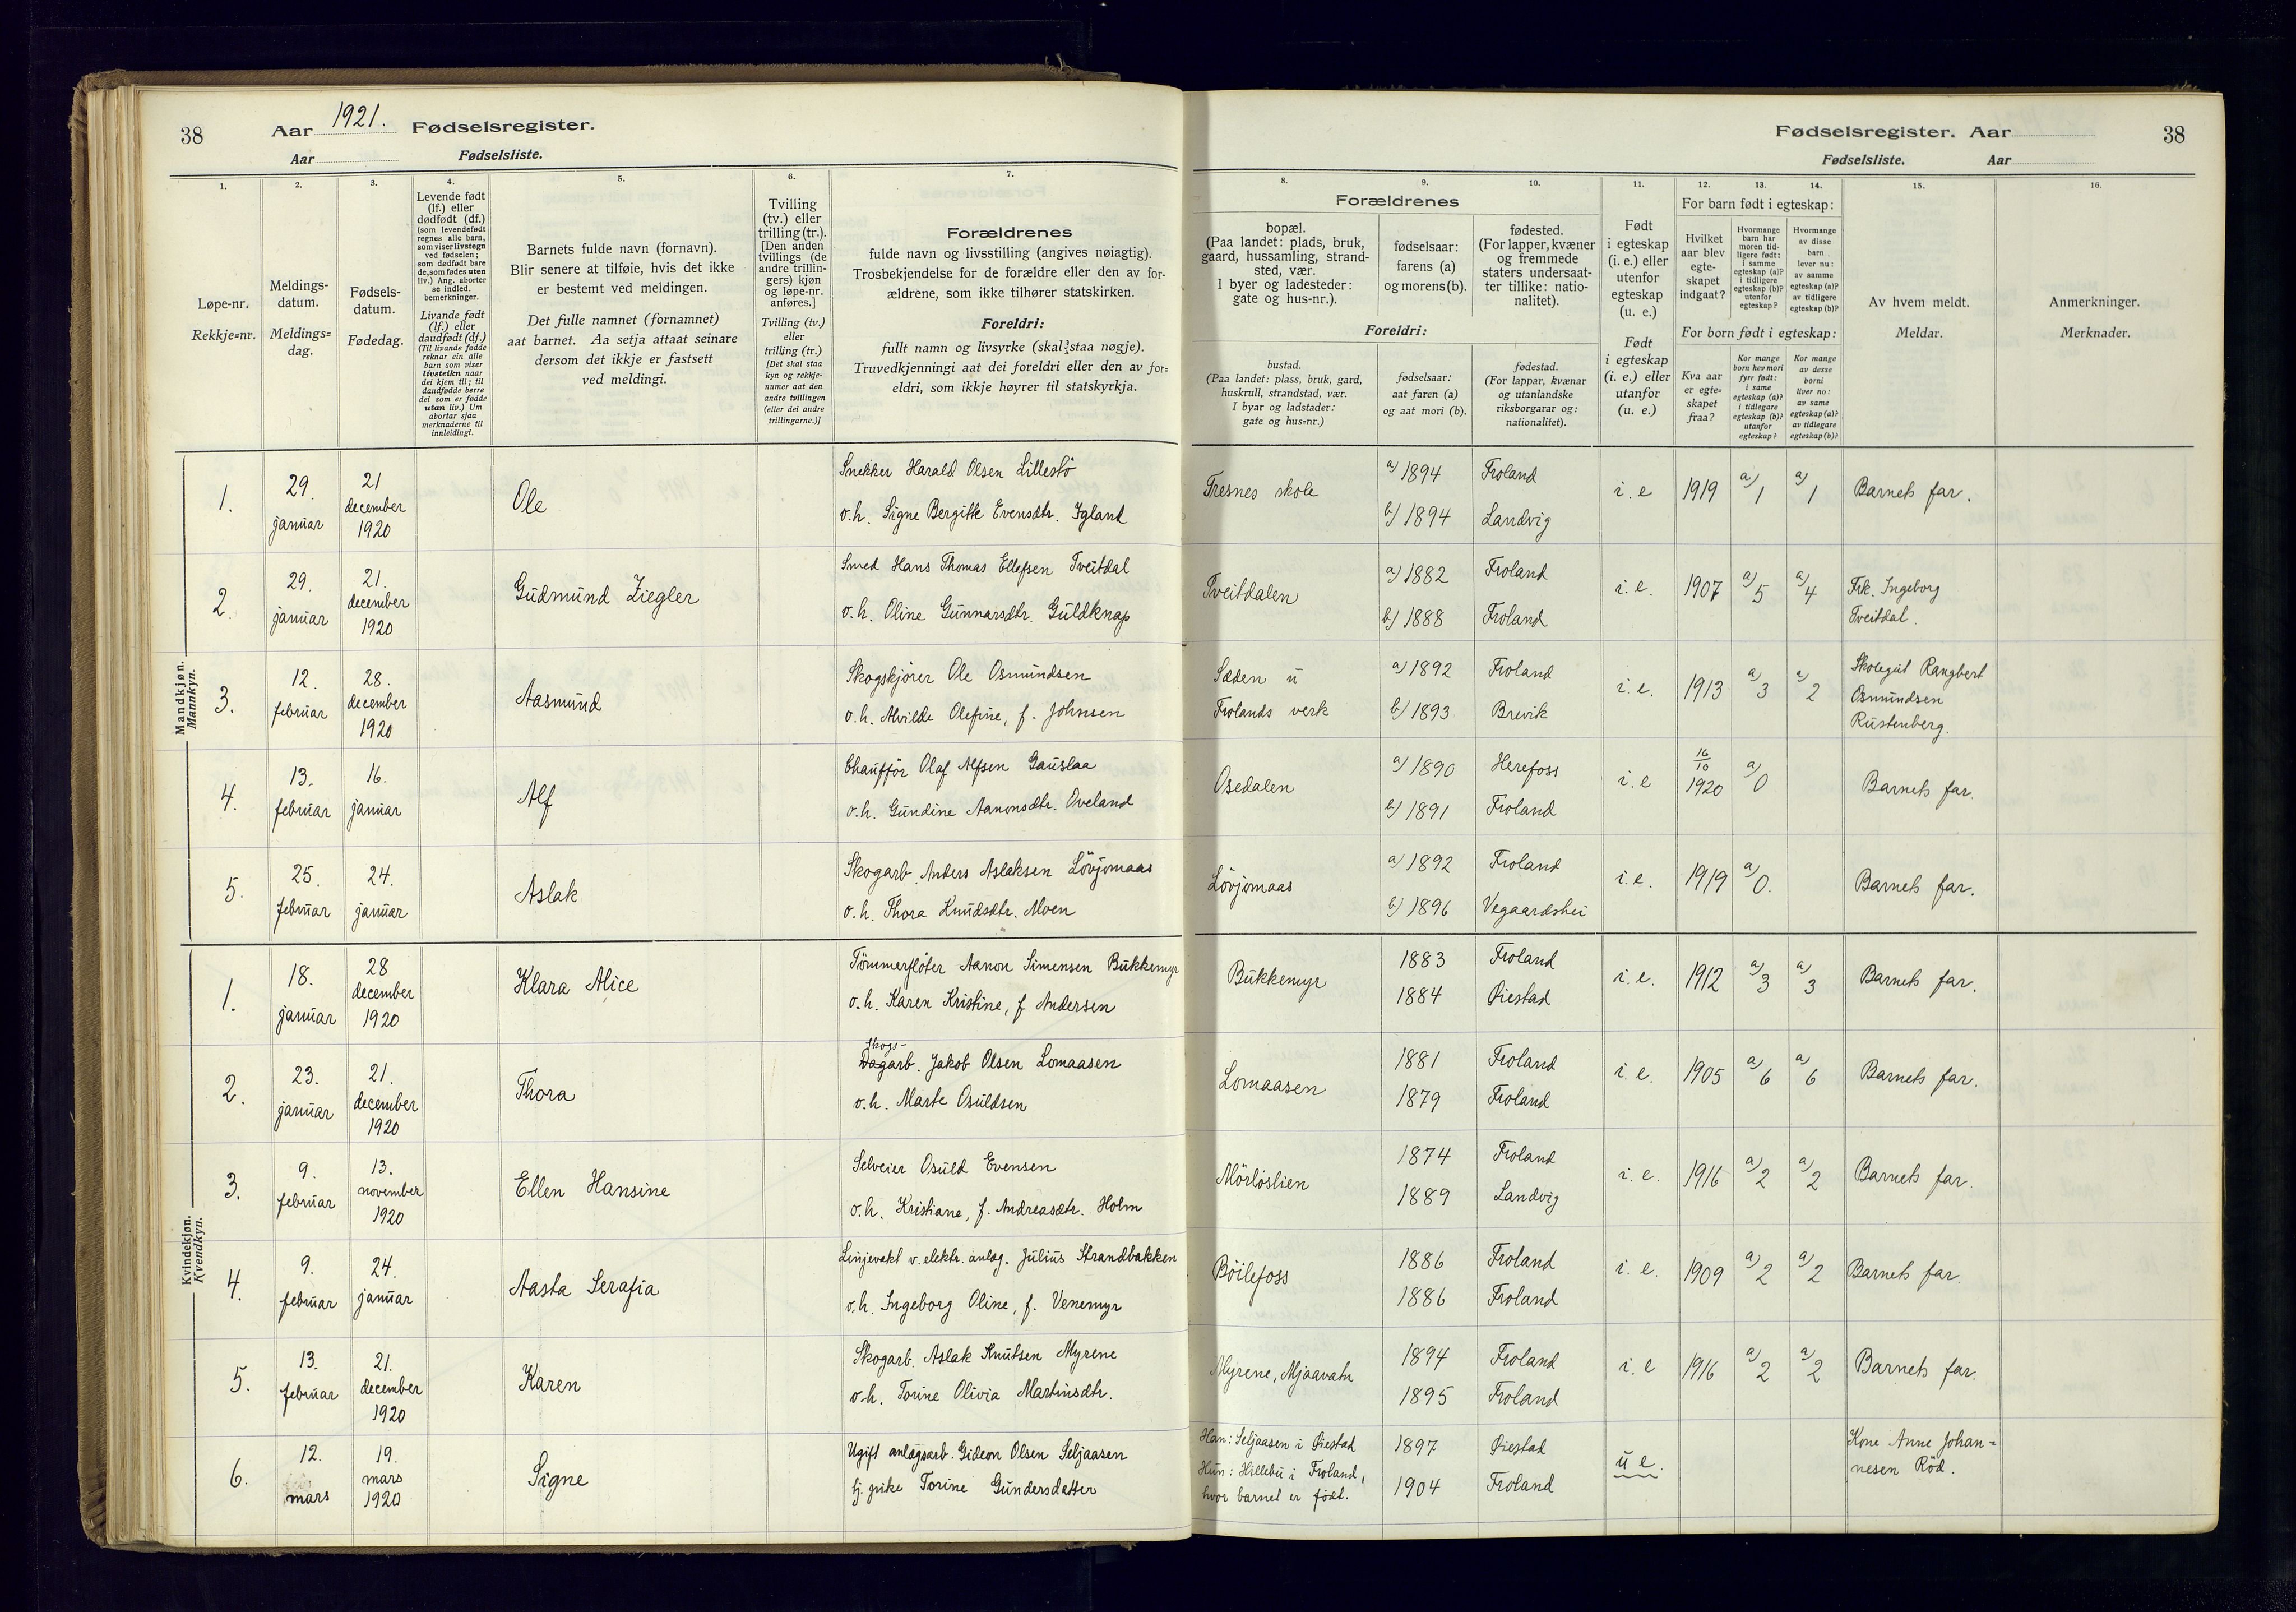 38
Aar 1921. Fødselsregister.
Aar Fødselsliste.
Fødselsregister. Aar
Fødselsliste. Aar
38
1.
Løpe-nr.
Rekkje=nr.
2.
Meldings-
datum.
Meldings=
dag.
3.
Fødsels-
datum.
Fødedag.
4.
Levende født
(lf.) eller
dødfødt (df.)
(som levendefødt
regnes alle barn,
som viser livstegn
ved fødselen;
som dødfødt bare
de, som fødes uten
liv.) Ang. aborter
se indled.
bemerkninger.
Livande født
(lf.) eller
daudfødt (df.)
(Til livande fødde
reknar ein alle
barn som viser
livsteikn naar
dei kjem til; til
daudfødde berre
dei som er fødde
utan liv.) Um
abortar sjaa
merknaderne til
innleidingi.
5.
Barnets fulde navn (fornavn).
Blir senere at tilføie, hvis det ikke
er bestemt ved meldingen.
Det fulle namnet (fornamnet)
aat barnet. Aa setja attaat seinare
dersom det ikkje er fastsett
ved meldingi.
6.
Tvilling
(tv.) eller
trilling (tr.).
[Den anden
tvillings (de
andre trillin-
gers) kjøn
og løpe-nr.
anføres.]
Tvilling (tv.)
eller
trilling (tr.)
[Det skal staa
kyn og rekkje-
numer aat den
andre tvillingen
(eller dei andre
trillingarne.)]
7.
Forældrenes
fulde navn og livsstilling (angives nøiagtig).
Trosbekjendelse for de forældre eller den av for-
ældrene, som ikke tilhører statskirken.
Foreldri:
fullt namn og livsyrke (skal staa nøgje).
Truvedkjenningi aat dei foreldri eller den av for=
eldri, som ikkje høyrer til statskyrkja.
Forældrenes
8.
bopæl.
(Paa landet: plads, bruk,
gaard, hussamling, strand-
sted, vær.
I byer og ladesteder:
gate og hus-nr.).
9.
fødselsaar:
farens (a)
og morens (b).
10.
fødested.
(For lapper, kvæner
og fremmede
staters undersaat-
ter tillike: natio-
nalitet).
Foreldri:
bustad.
(Paa landet: plass, bruk, gard,
huskrull, strandstad, vær.
I byar og ladstader:
gate og hus=nr.)
fødselsaar:
aat faren (a)
og aat mori (b).
fødestad.
(For lappar, kvænar
og utanlandske
riksborgarar og:
nationalitet).
11.
Født
i egteskap
(i. e.) eller
utenfor
egteskap
(u. e.)
Født
i egteskap
(i. e.) eller
utanfor
egteskap
(u. e.)
For barn født i egteskap:
12.
Hvilket
aar blev
egte-
skapet
indgaat?
13.
Hvormange
barn har
moren tid-
ligere født:
i samme
egteskap (a)?
i tidligere
egteskap (b)?
utenfor
egteskap?
14.
Hvormange
av disse
barn
lever nu:
av samme
egteskap (a)?
av tidligere
egteskap (b)?
For born født i egteskap:
Kva aar
er egte-
skapet
fraa?
Kor mange
born hev mori
fyrr født:
i same
egteskap (a)?
i tidlegare
egteskap (b)?
utanfor
egteskap?
Kor mange
av desse
borni
liver no:
av same
egteskap (a)?
av tidlegare
egteskap (b)?
15.
Av hvem meldt.
Meldar.
16.
Anmerkninger.
Merknader.
Mandkjøn.
Mannkyn.
1. 29. januar 21 december 1920 Ole
Snekker Harald Olsen Lillesö
o.h. Signe Bergitte Evensdtr. Igland
Tresnes skole a) 1894 Froland i. e 1919 a) 1 a) 1 Barnets far.
b) 1894 Landvig
2. 29. januar 21. december 1920 Gudmund Ziegler
Smed Hans Thomas Ellefsen Tveitdal
o.h. Oline Gunnarsdtr. Guldknap
Tveitdalen a) 1882 Froland i. e. 1907 a) 5 a) 4 Frk. Ingeborg
Tveitdal.
b) 1888 Froland
3. 12. februar 28. december 1920 Aasmund
Skogskjörer Ole Osmundsen
o.h. Alvilde Olefine, f. Johnsen
Sæden u
Frolands verk
a) 1892 Froland i. e. 1913 a) 3 a) 2 Skolegut Rangbert
Osmundsen
Rustenberg.
b) 1893 Brevik
4. 13. februar 16. januar Alf
Chaufför Olaf Alfsen Gauslaa
o.h. Gundine Aanonsdtr. Oveland
Osedalen a) 1890 Herefoss i. e 16/10 1920 a) 0 Barnets far.
b) 1891 Froland
5. 25. februar 24. januar Aslak
Skogarb. Anders Aslaksen Lövjomaas
o.h. Thora Knudsdtr. Moen
Lövjomaas a) 1892 Froland i. e. 1919 a) 0. Barnets far.
b) 1896 Vegaardshei
Kvindekjøn.
Kvendkyn.
1. 18. januar 28 december 1920 Klara Alice
Tömmerflöter Aanon Simensen Bukkemyr
o.h. Karen Kristine, f Andersen
Bukkemyr 1883 Froland i. e. 1912 a) 3 a) 3 Barnets far.
1884 Øiestad
2. 23. januar 21. december 1920 Thora
Skogs-
Dagarb. Jakob Olsen Lomaasen
o.h. Marte Osuldsen
Lomaasen 1881 Froland i. e. 1905 a) 6 a) 6 Barnets far.
1879 Froland
3. 9. februar 13. november 1920 Ellen Hansine
Selveier Osuld Evensen
o.h. Kristiane, f. Andreasdtr. Holm
Mörlöslien 1874 Froland i. e. 1916 a) 2 a) 2 Barnets far.
1889 Landvig
4. 9. februar 24. januar Aasta Serafia
Linjevakt v. elektr. anlæg. Julius Strandbakken
o.h. Ingeborg Oline, f. Venemyr
Böilefoss 1886 Froland i. e. 1909 a) 2 a) 2 Barnets far.
1886 Froland
5. 13. februar 21. december 1920 Karen
Skogarb. Aslak Knutsen Myrene
o.h. Torine Olivia Martinsdtr.
Myrene, Mjaavatn 1894 Froland i. e 1916 a) 2 a) 2 Barnets far.
1895 Froland
6. 12. mars 19. mars 1920 Signe
Ugift anlægsarb. Gideon Olsen Seljaasen
tj. pike Torine Gundersdatter
Han: Seljaasen i Øiestad
Hun: Hillebu i Froland,
hvor barnet er födt.
1897 Øiestad u e. Kone Anne Johan=
nesen Röd.
1904 Froland